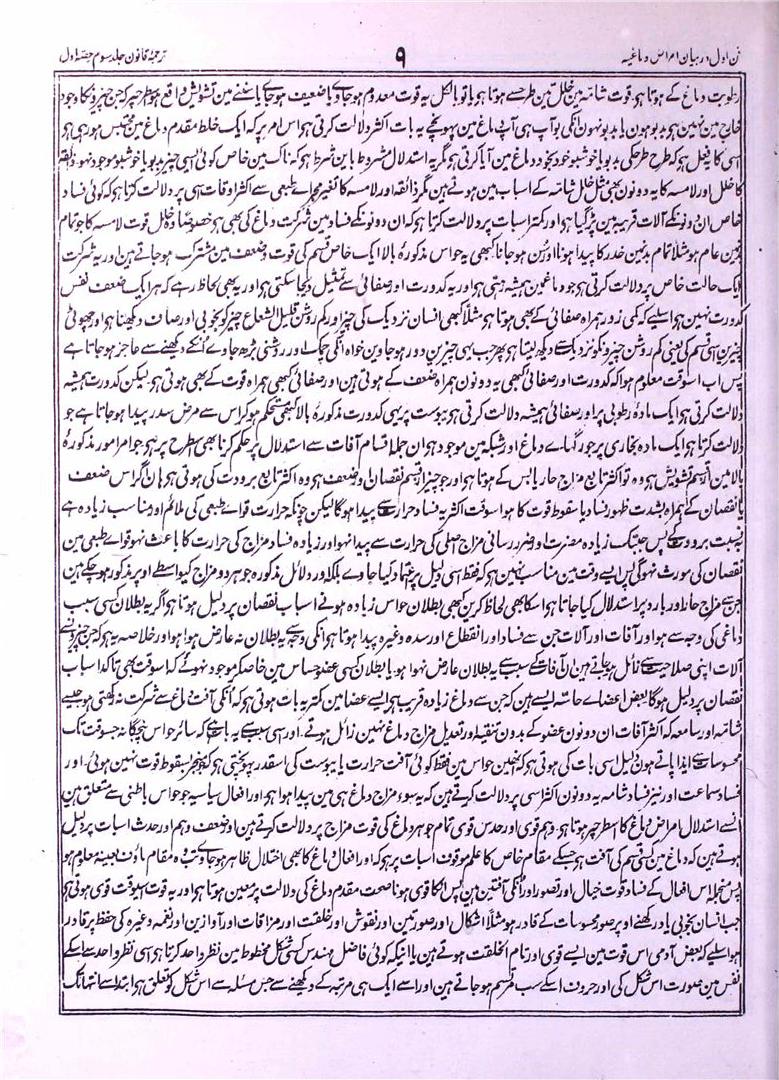 فن اول در بیان امراض دماغیہ
۹
ترجمۂ قانون جلد سوم حصۂ اول
رطوبت دماغ کے ہوتا ہو۔ قوت شامہ مین خلل تین طرحسے ہوتا ہو یا تو بالکل یہ قوت معدوم ہو جاوے یا ضعیف ہو جاوے یا سنے مین تشویش واقع ہو مطرحپر کہ جن چیزونکا وجود
خارج مین نہین ہو بدبو ہون یا بدبو نہون انکی بو آپ ہی آپ دماغ مین پہونچے یہ بات اکثر دلالت کرتی ہو اس امر پر کہ ایک خلط مقدم دماغ مین محتبس ہو رہی ہو
اسی کا یہ فعل ہو کہ طرح طرحکی بدبو یا خوشبو خودبخود دماغ مین آیا کرتی ہو مگر یہ استدلال مشروط باین شرط ہو کہ ناک مین خاص کوئی ایسی چیز بدبو یا خوشبو موجود نہو۔ ذائقہ
کا خلل اور لامسہ کا یہ دونون بھی مثل خلل شامہ کے اسباب مین ہوتے ہین مگر ذائقہ اور لامسہ کا تغیر مجراے طبعی سے اکثر اوقات اسی پر دلالت کرتا ہو کہ کوئی فساد
خاص ان دونکے آلات قریبہ مین پڑ گیا ہو اور کمتر اسبات پر دلالت کرتا ہو کہ ان دونکے فساد مین شرکت دماغ کی بھی ہو خصوصاً وہ خلل قوت لامسہ کا جو تمام
بدن مین عام ہو مثلاً تمام بدنمین خدر کا پیدا ہونا اور سُن ہو جانا کبھی یہ حواس مذکورۂ بالا ایک خاص قسم کی قوت و ضعف مین مشترک ہو جاتے ہین اور یہ شرکت
ایک حالت خاص پر دلالت کرتی ہو جو دماغمین ہمیشہ رہتی ہو اور یہ کدورت اور صفائی سے تمثیل دیجا سکتی ہو اور یہ بھی لحاظ رہے کہ ہر ایک ضعف نفس
کدورت نہین ہو اسلیے کہ کمی زور ہمراہ صفائی کے بھی ہوتا ہو مثلاً کبھی انسان نزدیک کی چیز اور کم روشن قلیل الشعاع چیز کو بخوبی اور صاف دیکھتا ہو اور چھوٹی
چیزین اسی قسم کی یعنی کم روشن چیزونکو نزدیک سے دیکھ لیتا ہو پھر جب یہی چیزین دور ہو جاوین خواہ انکی چمک اور روشنی بڑھ جاوے اُنکے دیکھنے سے عاجز ہو جاتا ہے
پس اب اسوقت معلوم ہوا کہ کدورت اور صفائی کبھی یہ دونون ہمراہ ضعف کے ہوتی ہین اور صفائی کبھی ہمراہ قوت کے بھی ہوتی ہو۔ لیکن کدورت ہمیشہ
دلالت کرتی ہو ایک مادۂ رطوبی پر اور صفائی ہمیشہ دلالت کرتی ہو یبوست پر یہی کدورت مذکورۂ بالا کبھی مستحکم ہو کر اس سے مرض سدر پیدا ہو جاتا ہے جو
دلالت کرتا ہو ایک مادہ بخاری پر جو رگہاے دماغ اور شبکہ مین موجود ہو ان جملہ اقسام آفات سے استدلال پر حکم کرنا بھی اسطرح پر ہو جو امر امور مذکورۂ
بالا مین از قسم تشویش ہو وہ تو اکثر تابع مزاج حار یابس کے ہوتا ہو اور جو چیز از قسم نقصان اور ضعف ہو وہ اکثر تابع برودت کی ہوتی ہو ہان اگر اس ضعف
یا نقصان کے ہمراہ بشدت ظہور فساد یا سقوط قوت کا ہو اسوقت اکثر یہ فساد حرارت سے پیدا ہوگا لیکن چونکہ حرارت قواے طبعی کی ملائم اور مناسب زیادہ ہے
بنسبت برودت کے پس جبتک زیادہ مضرت اور ضرر رسانی مزاج اصلی کی حرارت سے پیدا نہو اور زیادہ فساد مزاج کی حرارت کا باعث نہو قواے طبعی مین
نقصان کی مورث نہوگی پس ایسے وقت مین مناسب نہین ہو کہ فقط اسی دلیل پر اعتماد کیا جاوے بلکہ اور دلائل مذکورہ جو ہر دو مزاج کیواسطے اوپر مذکور ہو چکے ہین
جن سے مزاج حار اور بارد پر استدلال کیا جاتا ہو اسکا بھی لحاظ کرین کبھی بطلان حواس زیادہ ہونے اسباب نقصان پر دلیل ہوتا ہو اگر یہ بطلان کسی سبب
دماغی کی وجہ سے ہو اور آفات اور آلات جن سے فساد اور انقطاع اور سدہ وغیرہ پیدا ہوتا ہو انکی وجہسے یہ بطلان نہ عارض ہوا ہو اور خلاصہ یہ ہو کہ جن چیزونسے
آلات اپنی صلاحیت سے زائل ہو جاتے ہین ان آفات کے سبب سے یہ بطلان عارض نہوا ہو۔ یا بطلان کسی عضو حساس مین خاصکر موجود نہو کہ اسوقت بھی تاکد اسباب
نقصان پر دلیل ہوگا بعض اعضاے حاسہ ایسے ہین کہ جن سے دماغ زیادہ قریب ہو ایسے اعضا مین کمتر یہ بات ہوتی ہو کہ انکی آفت دماغ سے شرکت نہ رکھتی ہو جیسے
شامہ اور سامعہ کہ اکثر آفات ان دونون عضو کے بدون تنقیہ اور تعدیل مزاج دماغ نہین زائل ہوتے۔ اور اسی سبب سے یہ بات ہے کہ سائر حواس پنجگانہ جسوقت تک
محسوسات سے ایذا پاتے ہون دلیل اسی بات کی ہوتی ہو کہ انہین حواس مین فقط کوئی آفت حرارت یا یبوست کی اسقدر پہونچتی ہو کہ ہنوز سقوط قوت نہین ہوئی۔ اور
فساد سماعت اور نیز فساد شامہ یہ دونون اکثر اسی پر دلالت کرتے ہین کہ یہ سوء مزاج دماغ ہی مین پیدا ہوا ہو۔ اور افعال سیاسیہ جو حواس باطنی سے متعلق ہین
انسے استدلال امراض دماغ کا اسطرحپر ہوتا ہو۔ وہم قوی اور حدس قوی تمام جوہر دماغ کی قوت مزاج پر دلالت کرتے ہین اور ضعف وہم اور حدث اسبات پر دلیل
ہوتے ہین کہ دماغ مین کسی قسم کی آفت ہو جسکے مقام خاص کا علم موقوف اسبات پر ہو کہ اور افعال دماغ کا بھی اختلال ظاہر ہو جاوے تب وہ مقام ماؤف بعینہ معلوم ہو
پس منجملہ اس افعال کے فساد قوت خیال اور تصور اور انکی آفتین ہین پس اسکا قوی ہونا صحت مقدم دماغ کی دلالت پر معین ہوتا ہو اور یہ قوت اسیوقت قوی ہوتی ہو
جب انسان بخوبی یاد رکھنے اوپر صور محسوسات کے قادر ہو مثلاً اشکال اور صورتین اور نقوش اور خلقت اور مزاقات اور آوازین اور نغمہ وغیرہ کی حفظ پر قادر
ہو اسلیے کہ بعض آدمی اس قوت مین ایسے قوی اور تام الخلقت ہوتے ہین یہانتک کہ کوئی فاضل مہندس کسی شکل مخطوط مین نظر واحد کرتا ہو اسی نظر واحد سے اسکے
نفس مین صورت اس شکل کی اور حروف اسکے سب مرتسم ہو جاتے ہین اور اسے ایک ہی مرتبہ کے دیکھنے سے جس مسئلہ سے اس شکل کو تعلق ہو ابتدا سے انتہا تک